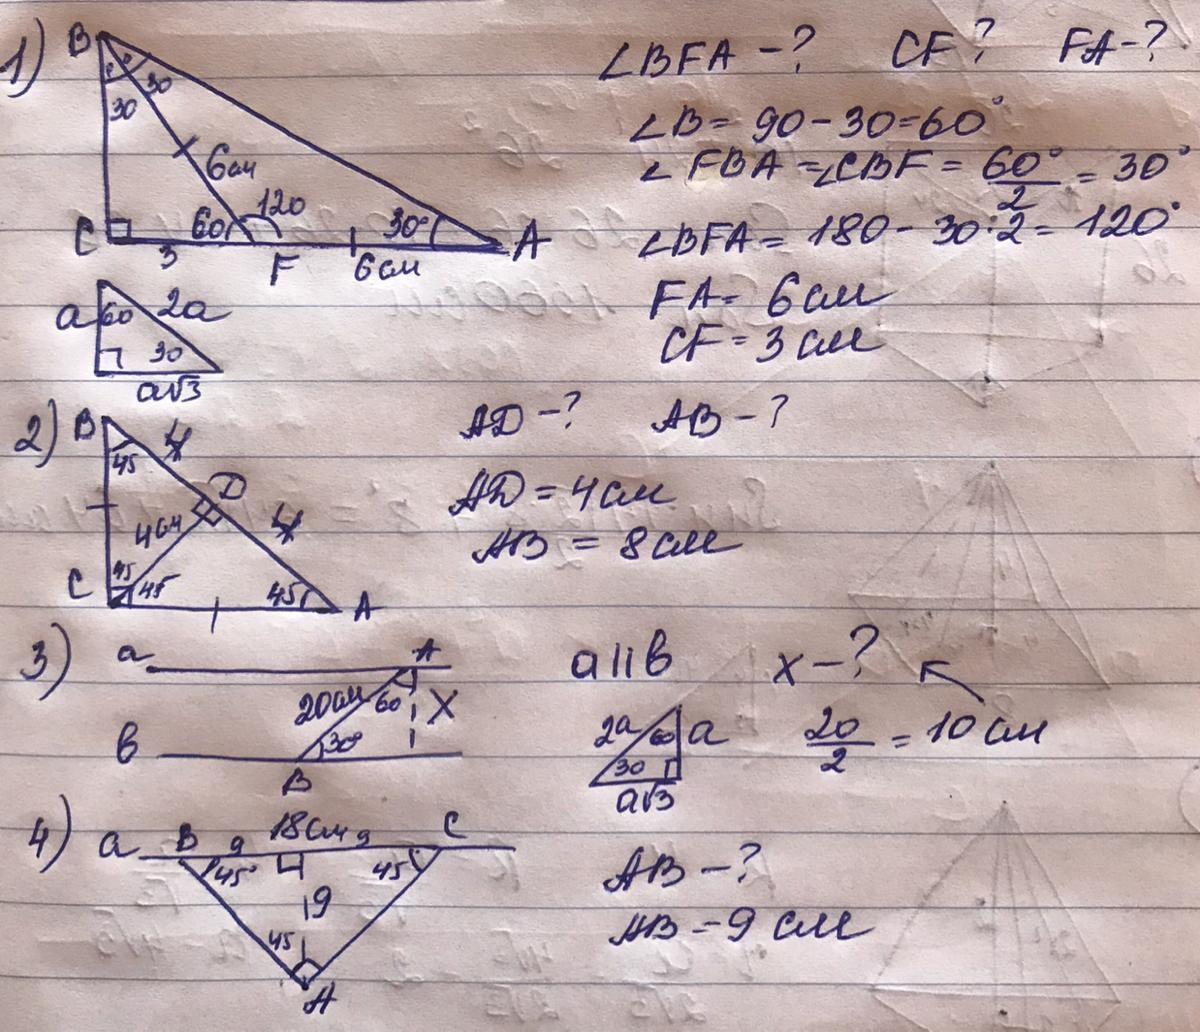 1) B ∠BFA -? CF? FA-?
30 30
∠B= 90-30=60°
6см ∠FBA =∠CBF = 60°/2 = 30°
C 60 120 30° A ∠BFA = 180- 30·2= 120°
3 F 6см
FA= 6см
a 60 2a CF = 3см
30
a√3
2) B 4 AD -? AB -?
45
D AD = 4см
4см 4 AB = 8см
C 45 45 45 A
3) a A a||в x -?
20см 60 X 2a 60 a 20/2 = 10см
в 30° 30
B a√3
4) a B 9 18см 9 C
45° 45 AB -?
9 AB - 9см
45
A